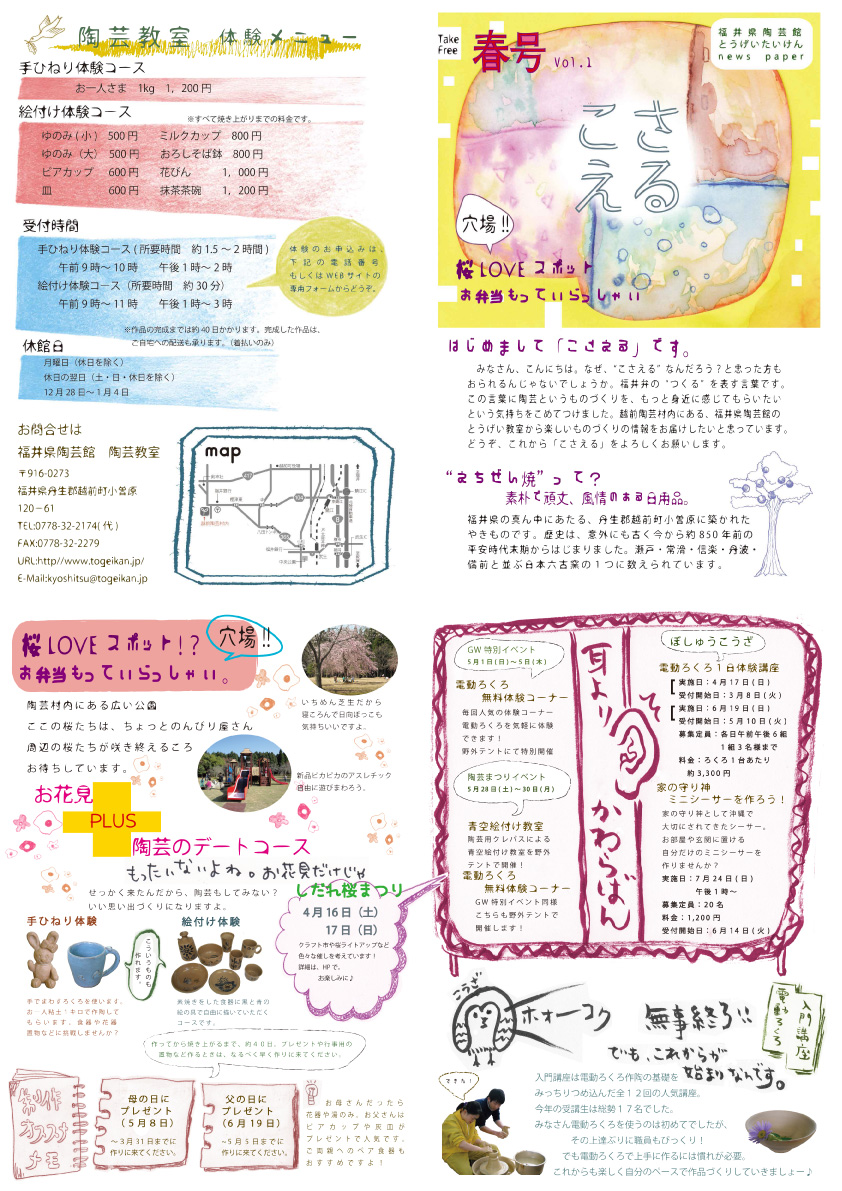 陶芸教室 体験メニュー
手ひねり体験コース
お一人さま 1kg 1，200円
絵付け体験コース
※すべて焼き上がりまでの料金です。
ゆのみ(小) 500円 ミルクカップ 800円
ゆのみ（大） 500円 おろしそば鉢 800円
ビアカップ 600円 花びん 1，000円
皿 600円 抹茶茶碗 1，200円
受付時間
手ひねり体験コース(所要時間 約1.5～2時間)
午前9時～10時 午後1時～2時
絵付け体験コース（所要時間 約30分）
午前9時～11時 午後1時～3時
体験のお申込みは、
下記の電話番号
もしくはWEBサイトの
専用フォームからどうぞ。
※作品の完成までは約40日かかります。完成した作品は、
ご自宅への配送も承ります。（着払いのみ）
休館日
月曜日（休日を除く）
休日の翌日（土・日・休日を除く）
12月28日～1月4日
お問合せは
福井県陶芸館 陶芸教室
〒916-0273
福井県丹生郡越前町小曽原
120－61
TEL:0778-32-2174(代)
FAX:0778-32-2279
URL:http//www.togeikan.jp/
E-Mail:kyoshitsu@togeikan.jp
map
Take
Free
春号 Vol.1
福井県陶芸館
とうげいたいけん
news paper
こさえる
穴場!!
桜LOVEスポット
お弁当もっていらっしゃい
はじめまして「こさえる」です。
みなさん、こんにちは。なぜ、“こさえる”なんだろう？と思った方も
おられるんじゃないでしょうか。福井弁の“つくる”を表す言葉です。
この言葉に陶芸というものづくりを、もっと身近に感じてもらいたい
という気持ちをこめてつけました。越前陶芸村内にある、福井県陶芸館の
とうげい教室から楽しいものづくりの情報をお届けしたいと思っています。
どうぞ、これから「こさえる」をよろしくお願いします。
“えちぜん焼”って？
素朴で頑丈、風情のある日用品。
福井県の真ん中にあたる、丹生郡越前町小曽原に築かれた
やきものです。歴史は、意外にも古く今から約850年前の
平安時代末期からはじまりました。瀬戸・常滑・信楽・丹波・
備前と並ぶ日本六古窯の1つに数えられています。
桜LOVEスポット!？
穴場!!
お弁当もっていらっしゃい。
陶芸村内にある広い公園
ここの桜たちは、ちょっとのんびり屋さん
周辺の桜たちが咲き終えるころ
お待ちしています。
いちめん芝生だから
寝ころんで日向ぼっこも
気持ちいいですよ。
新品ピカピカのアスレチック
自由に遊びまわろう。
お花見
PLUS
陶芸のデートコース
もったいないよね。お花見だけじゃ
せっかく来たんだから、陶芸もしてみない？
いい思い出づくりになりますよ。
手ひねり体験
絵付け体験
こういうものも
作れます。
手でまわすろくろを使います。
お一人粘土1キロで作陶して
もらいます。食器や花器
置物などに挑戦しませんか？
素焼きをした食器に黒と青の
絵の具で自由に描いていただく
コースです。
しだれ桜まつり
4月16日（土）
17日（日）
クラフト市や桜ライトアップなど
色々な催しを考えています！
詳細は、HPで。
お楽しみに♪
作ってから焼き上がるまで、約40日、プレゼントや行事用の
置物など作るときは、なるべく早く作りに来てください。
製作
オススメ
メモ
母の日に
プレゼント
（5月8日）
～3月31日までに
作りに来てください。
父の日に
プレゼント
（6月19日）
～5月5日までに
作りに来てください。
お母さんだったら
花器や湯のみ、お父さんは
ビアカップや灰皿が
プレゼントで人気です。
ご両親へのペア食器も
おすすめですよ！
GW特別イベント
5月1日(日)～5日(木)
電動ろくろ
無料体験コーナー
毎回人気の体験コーナー
電動ろくろを気軽に体験
できます！
野外テントにて特別開催
陶芸まつりイベント
5月28日(土)～30日(月)
青空絵付け教室
陶芸用クレパスによる
青空絵付け教室を野外
テントで開催！
電動ろくろ
無料体験コーナー
GW特別イベント同様
こちらも野外テントで
開催します！
耳よりかわらばん
ぼしゅうこうざ
電動ろくろ1日体験講座
実施日：4月17日(日)
受付開始日：3月8日(火)
実施日：6月19日(日)
受付開始日：5月10日(火)
募集定員：各日午前午後6組
1組3名様まで
料金：ろくろ1台あたり
約3,300円
家の守り神
ミニシーサーを作ろう！
家の守り神として沖縄で
大切にされてきたシーサー。
お部屋や玄関に置ける
自分だけのミニシーサーを
作りませんか？
実施日：7月24日(日)
午後1時～
募集定員：20名
料金：1,200円
受付開始日：6月14日(火)
こうざ
ホォーコク
無事終了!!
でも、これからが
始まりなんです。
電動ろくろ
入門講座
できた！
入門講座は電動ろくろ作陶の基礎を
みっちりつめ込んだ全12回の人気講座。
今年の受講生は総勢17名でした。
みなさん電動ろくろを使うのは初めてでしたが、
その上達ぶりに職員もびっくり！
でも電動ろくろで上手に作るには慣れが必要。
これからも楽しく自分のペースで作品づくりしていきましょー♪